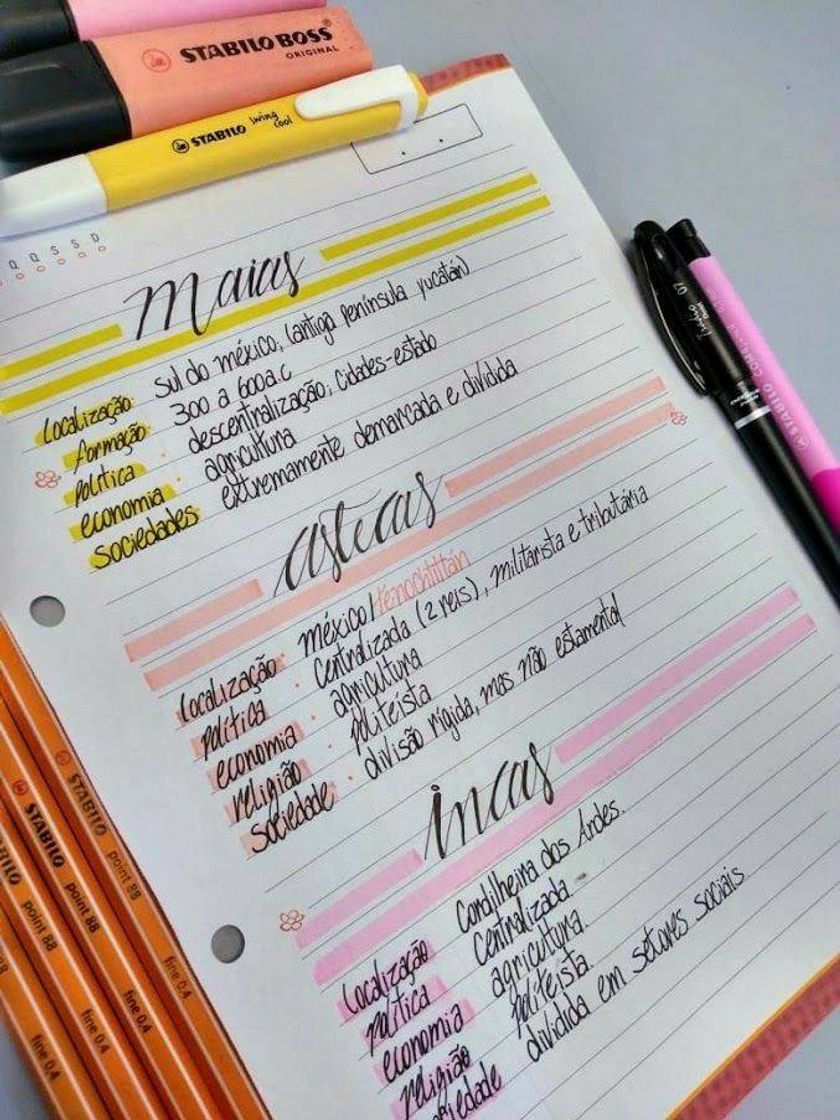 STABILO BOSS®
ORIGINAL
STABILO swing cool
Q Q S S D
maias
localização: sul do méxico, (antiga península yucatán)
formação: 300 a 600 a.c
política: descentralização; cidades-estado
economia: agricultura
sociedades: extremamente demarcada e dividida
astecas
localização: méxico/Tenochtitlán
política: centralizada (2 reis), militarista e tributária
economia: agricultura
religião: politeísta
sociedade: divisão rígida, mas não estamental
incas
localização cordilheira dos Andes.
política centralizada.
economia agricultura.
religião politeísta.
sociedade dividida em setores sociais
07
STABILO
STABILO point 88 fine 0,4
STABILO point 88 fine 0,4
STABILO point 88 fine 0,4
fine 0,4